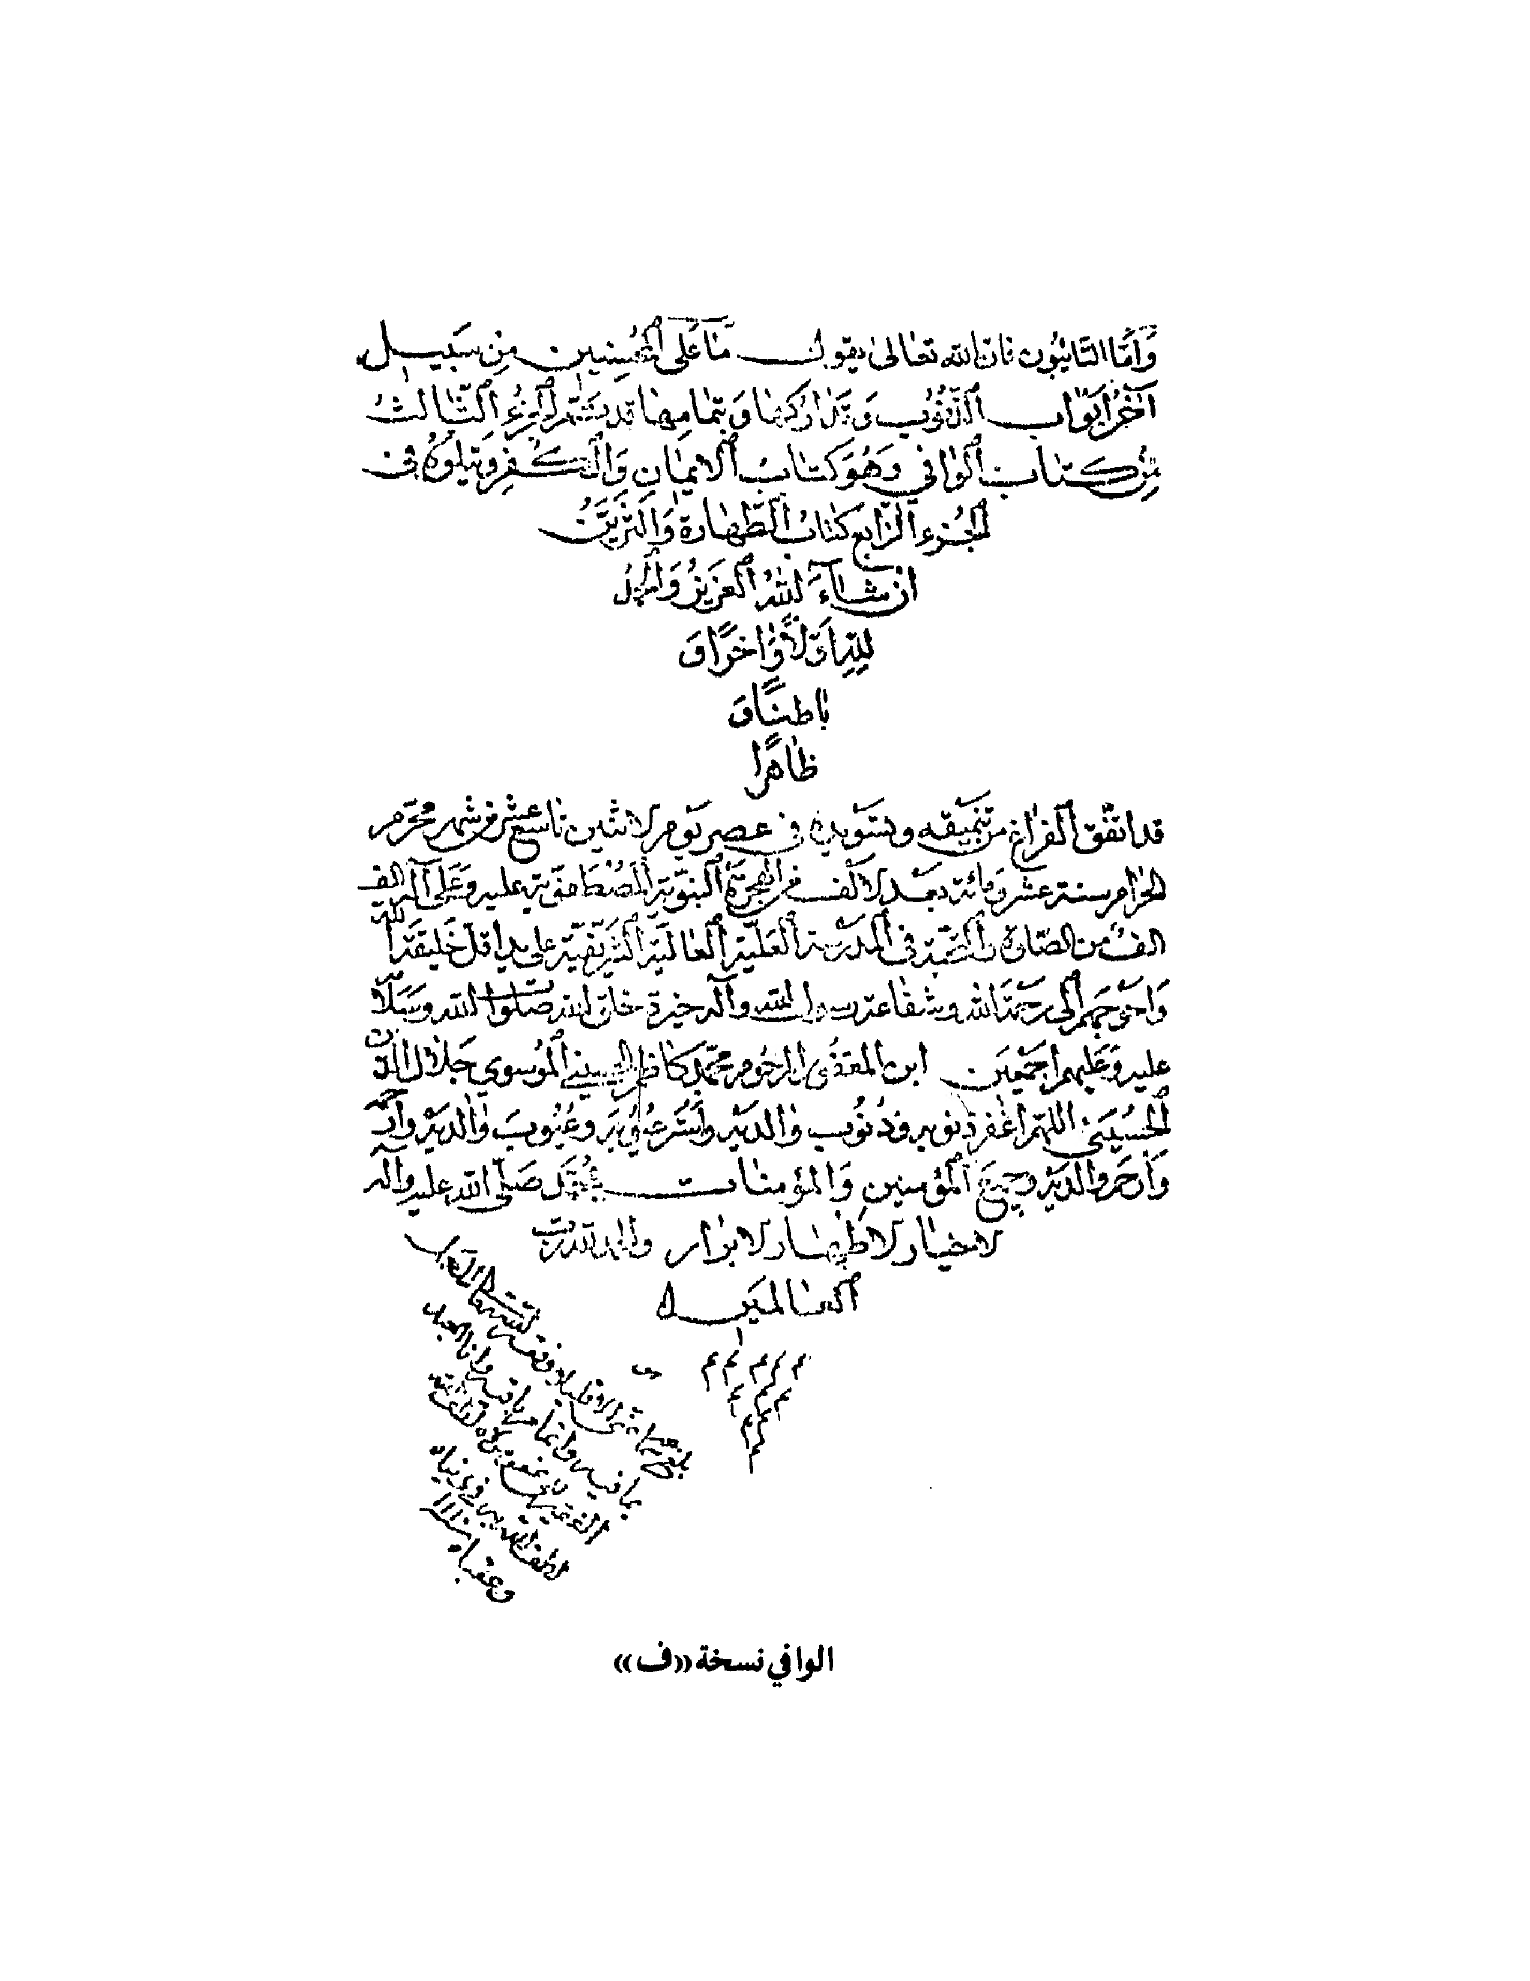 وَأَمَّا التَّائِبُونَ فَانَّ اللهَ تَعَالى يَقولُ مَا عَلَى المُحْسِنِينَ مِن سَبِيلٍ
آخرُ ابَوَاب الذّنُوب وَتَدَارُكهَا وَبِتمامِهَا قد تَمَّ الجزءُ الثّالثُ
مِن كتاب الوافي وَهُوَ كتابُ الايمَانِ وَالكُفرِ وَيتلوهُ في
الجُزءِ الرّابع كتابُ الطّهارة وَالتزيّن
ان شاءَ اللهُ العَزيزُ وَالحمدُ
للهِ اوّلاً وَاخرًا وَ
بَاطنًا وَ
ظَاهرًا
قد اتّفق الفراغ من تنميقه وتسويده في عصر يَوم الاثنين تاسع عشر من شهر محرّم
الحرام سنة عشر ومائة بعد الالف من الهجرة النبويّة المصطفويّة عليه وعَلى آله الف
الف من الصّلاة والتحيّة في المدرسة العليّة العالية الشريفيّة على يد اقل خليقة الله
وَاحوجهم الى رحمة الله وشفاعة رسول الله وآله خيرة خلق الله صلوات الله وسَلامه
عليه وَعَليهم اجمَعين ابن المرحوم محمّد كاظم الحسيني الموسوي جلال الدين
الحُسيني اللهم اغفر ذنوبه وذنُوب وَالديه واستر عيُوبه وعيُوب وَالديه وارحمه
وَارحم والديه وجميع المؤمنين وَالمؤمنات بمحمّد صَلّى الله عليه وآله
الاخيار الاطهار الابرار والحمد لله ربّ
العالمين
م م م م م
م م م
م م
م
وانا العبد
بما فيه
الفقير الى عفو
لطف الله
وعقباه
الوافي نسخة «ف»